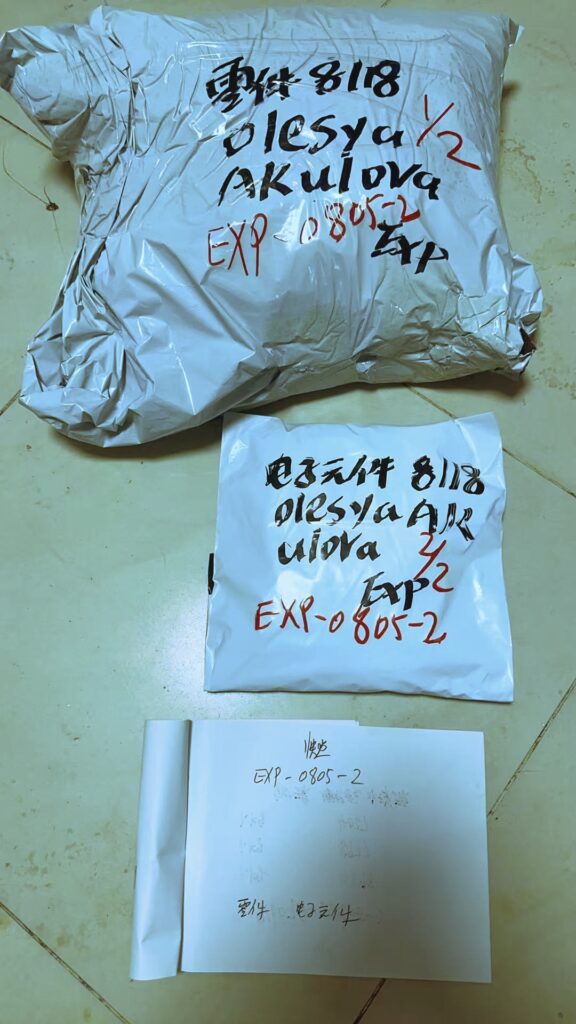 零件 8118
olesya 1/2
AKulova
EXP-0805-2
Exp
电子元件 8118
olesya AK
ulova 2/2
Exp
EXP-0805-2
快递
EXP-0805-2
零件 电子元件